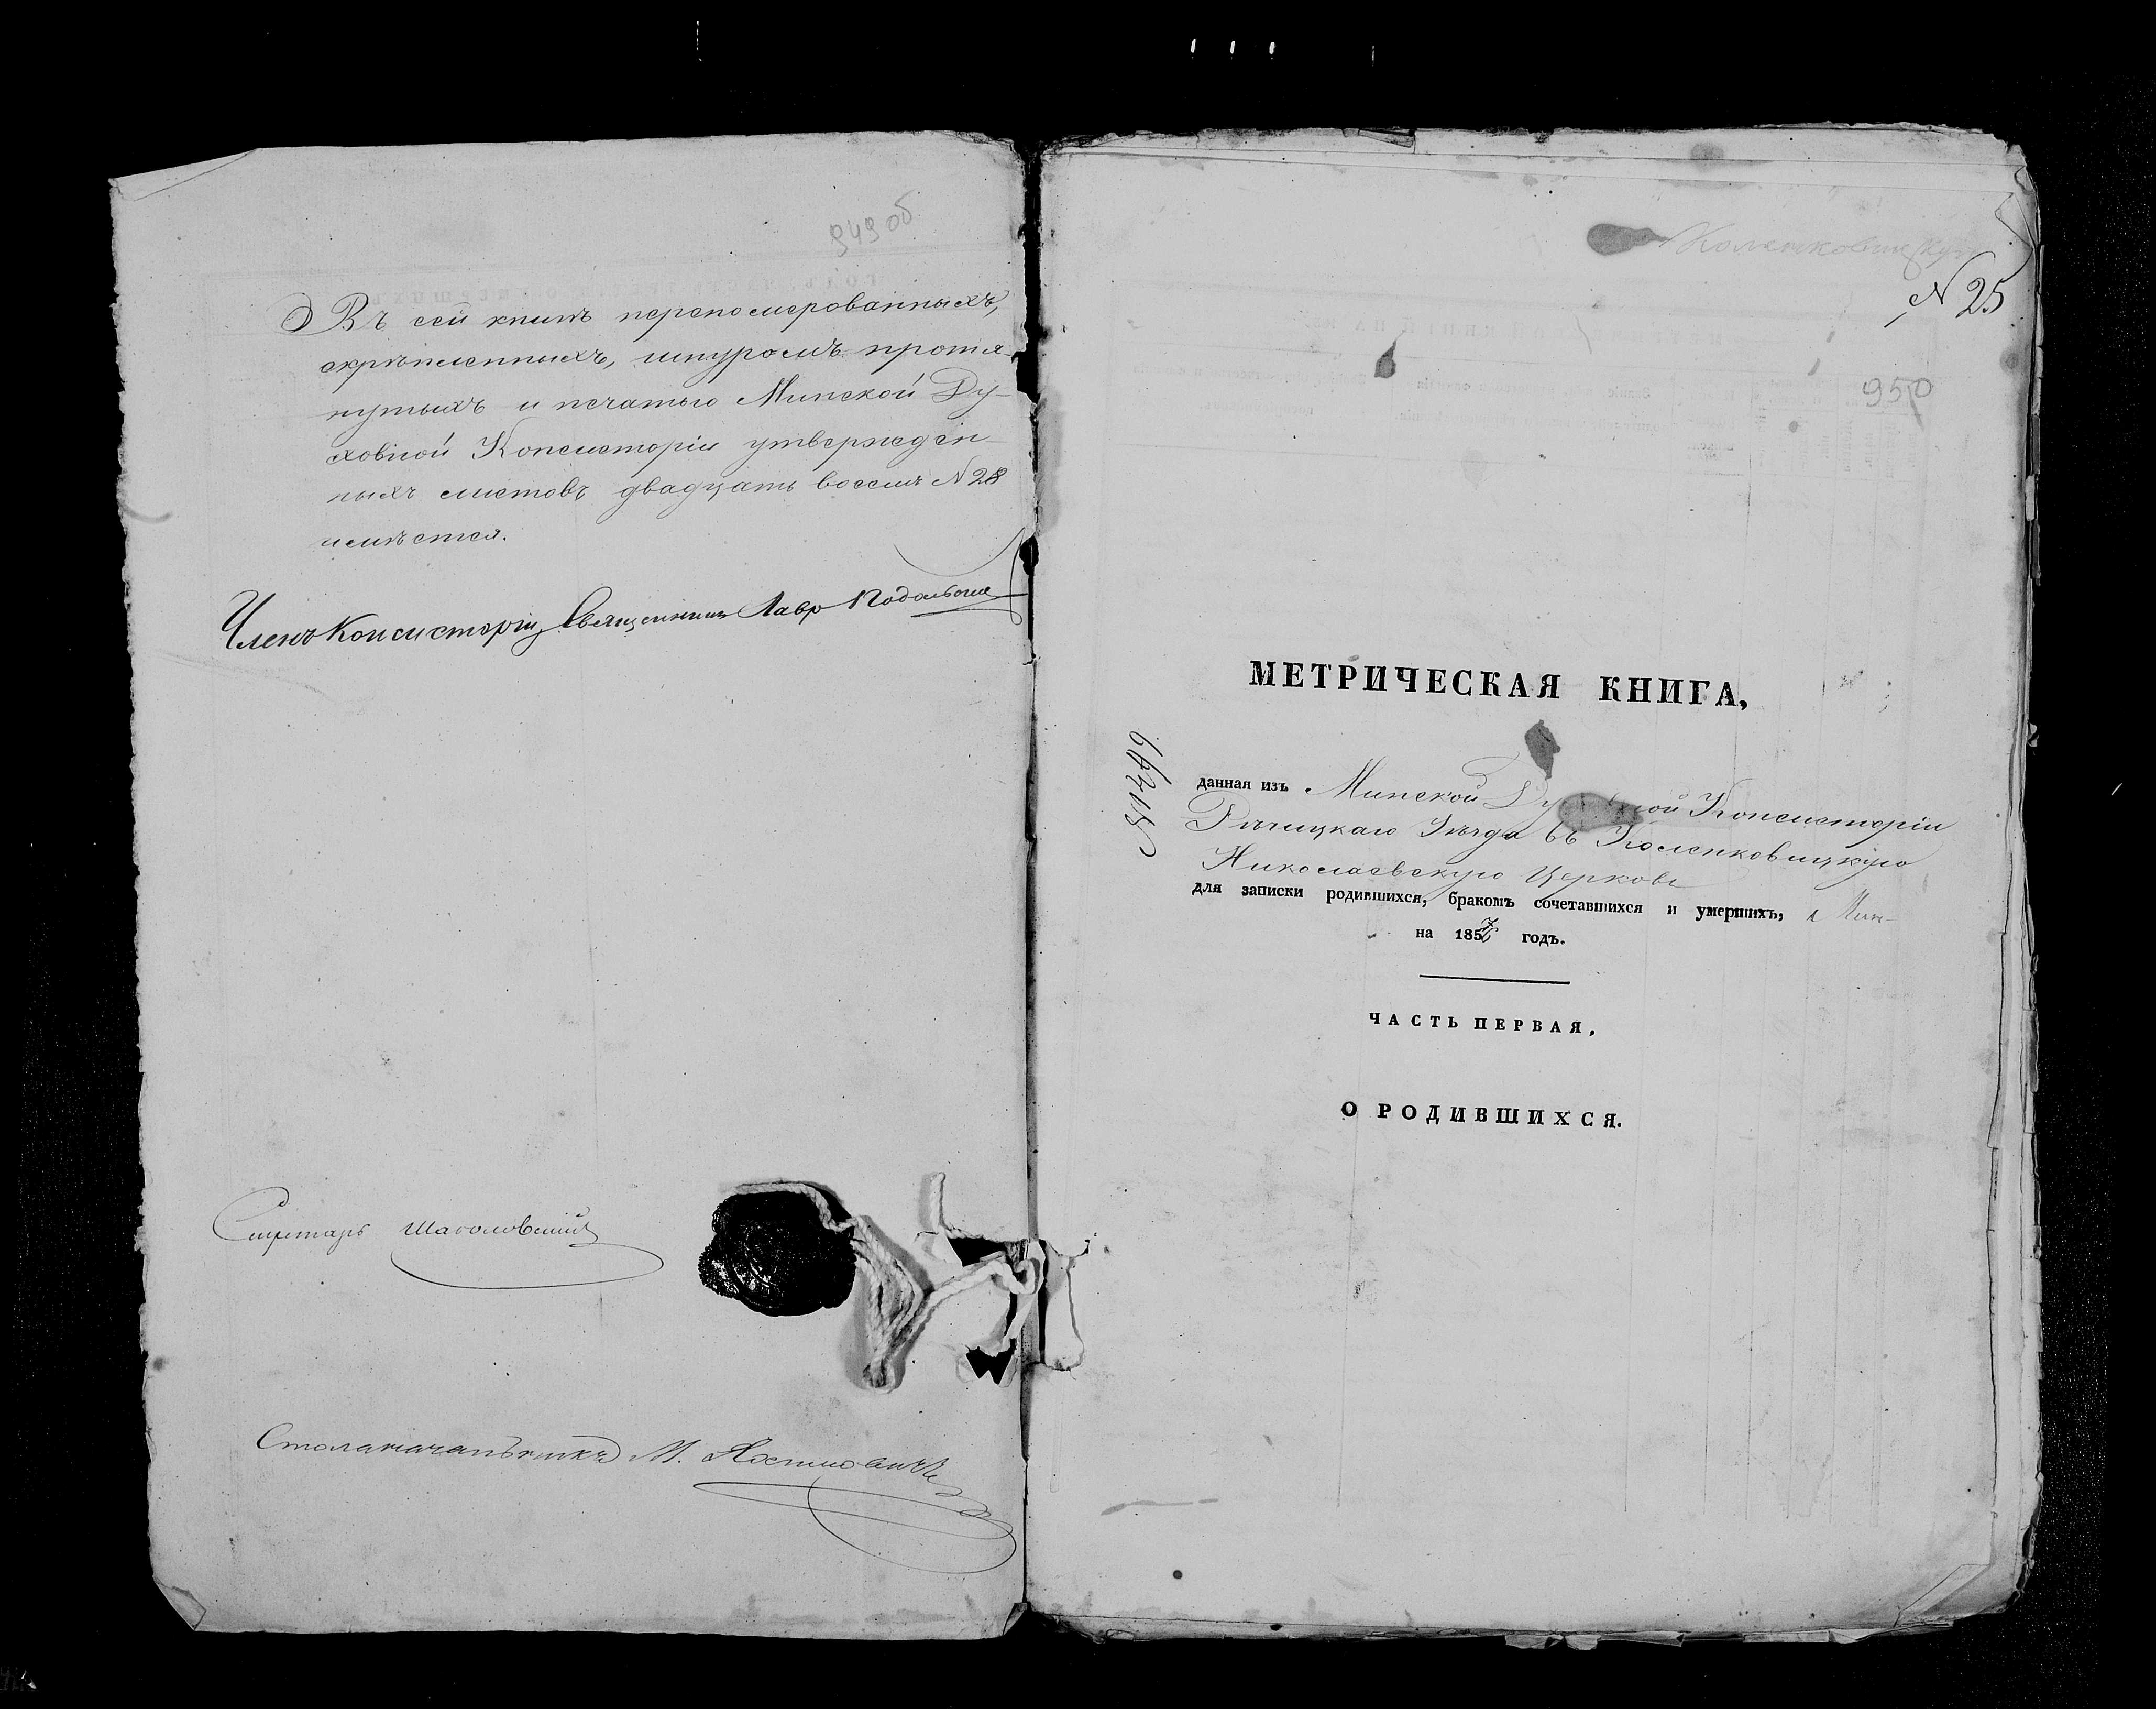 949 об
Въ сей книгѣ переномерованныхъ,
скрѣпленныхъ, шнуромъ протя-
нутыхъ и печатью Минской Ду-
ховной Консисторіи утвержден-
ныхъ листовъ двадцать восемь № 28
имѣется.
Членъ Консисторіи, Священникъ Лавр
Секретарь
Столоначальникъ М.
№ 25
950
МЕТРИЧЕСКАЯ КНИГА,
данная изъ Минской Духовной Консисторіи
Рѣчицкаго Уѣзда въ Коленковицкую
Николаевскую Церковь
для записки родившихся, бракомъ сочетавшихся и умершихъ,
на 1857 годъ.
ЧАСТЬ ПЕРВАЯ,
О РОДИВШИХСЯ.